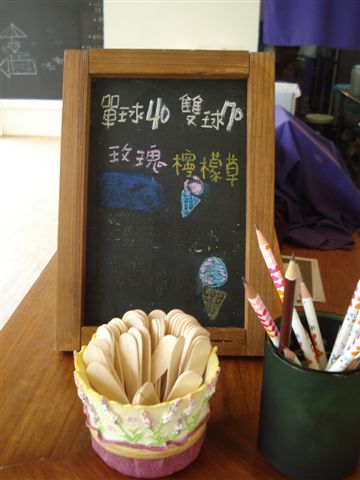 單球40 雙球70
玫瑰 檸檬草